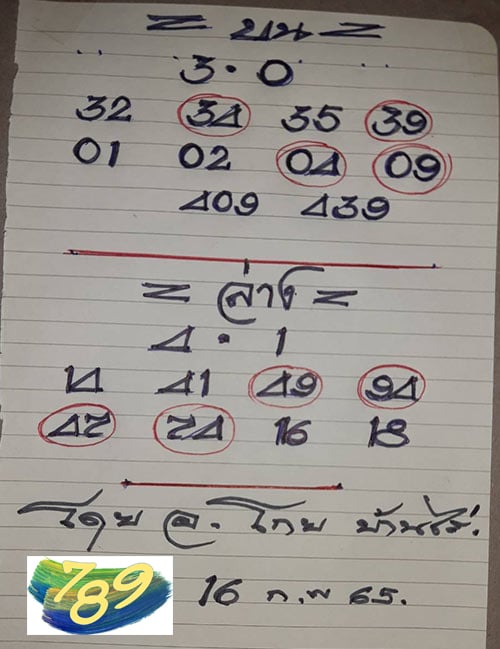 = บน =
3 · 0
32 34 35 39
01 02 04 09
409 439
= ล่าง =
4 · 1
14 41 49 94
47 74 16 18
โดย อ. โกย บ้านไผ่.
789
16 ก.พ 65.